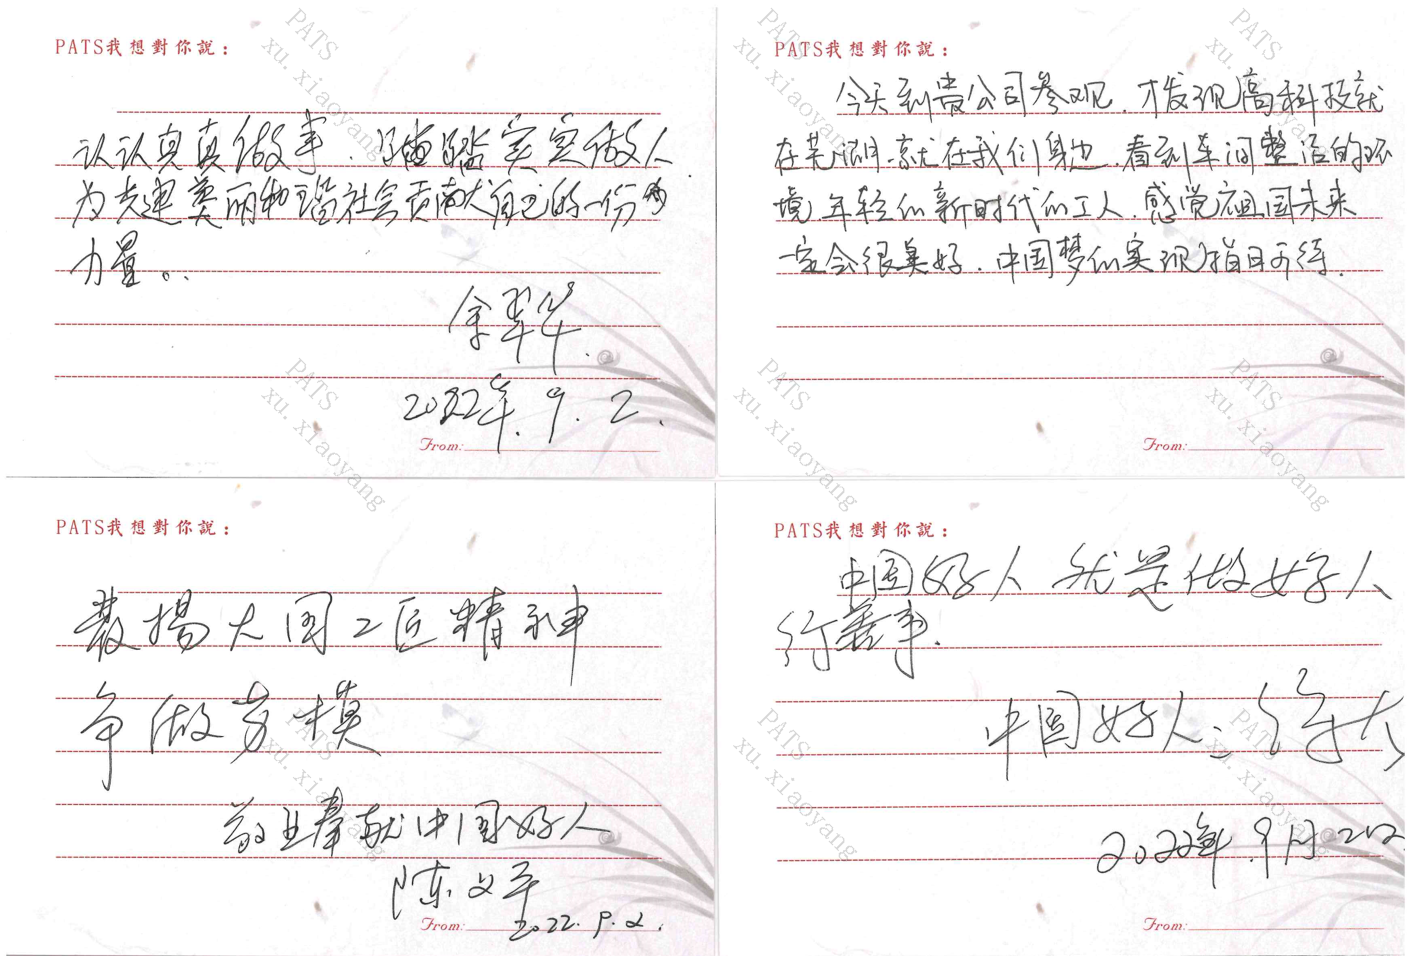 PATS我想對你說：
认认真真做事、踏踏实实做人
为共建美丽和谐社会贡献自己的一份
力量。
余翠华
2022年.9.2.
From:
PATS我想對你說：
今天到贵公司参观，才发现高科技就
在芜湖，就在我们身边，看到车间整洁的环
境，年轻的新时代的工人，感觉祖国未来
一定会很美好，中国梦的实现指日可待.
From:
PATS我想對你說：
發揚大国工匠精神
争做劳模
敬业奉献中国好人
陈文
2022.9.2.
From:
PATS我想對你說：
中国好人 就是做好人
行善事.
中国好人：
2022年.9月2日
From:
PATS
xu.xiaoyang